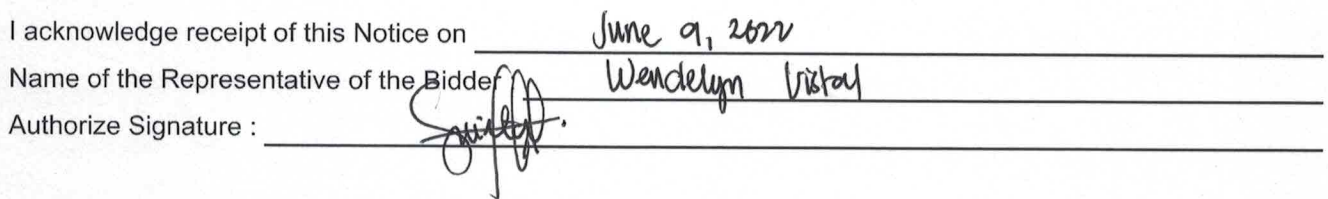 I acknowledge receipt of this Notice on June 9, 2022
Name of the Representative of the Bidder Wendelyn
Authorize Signature :